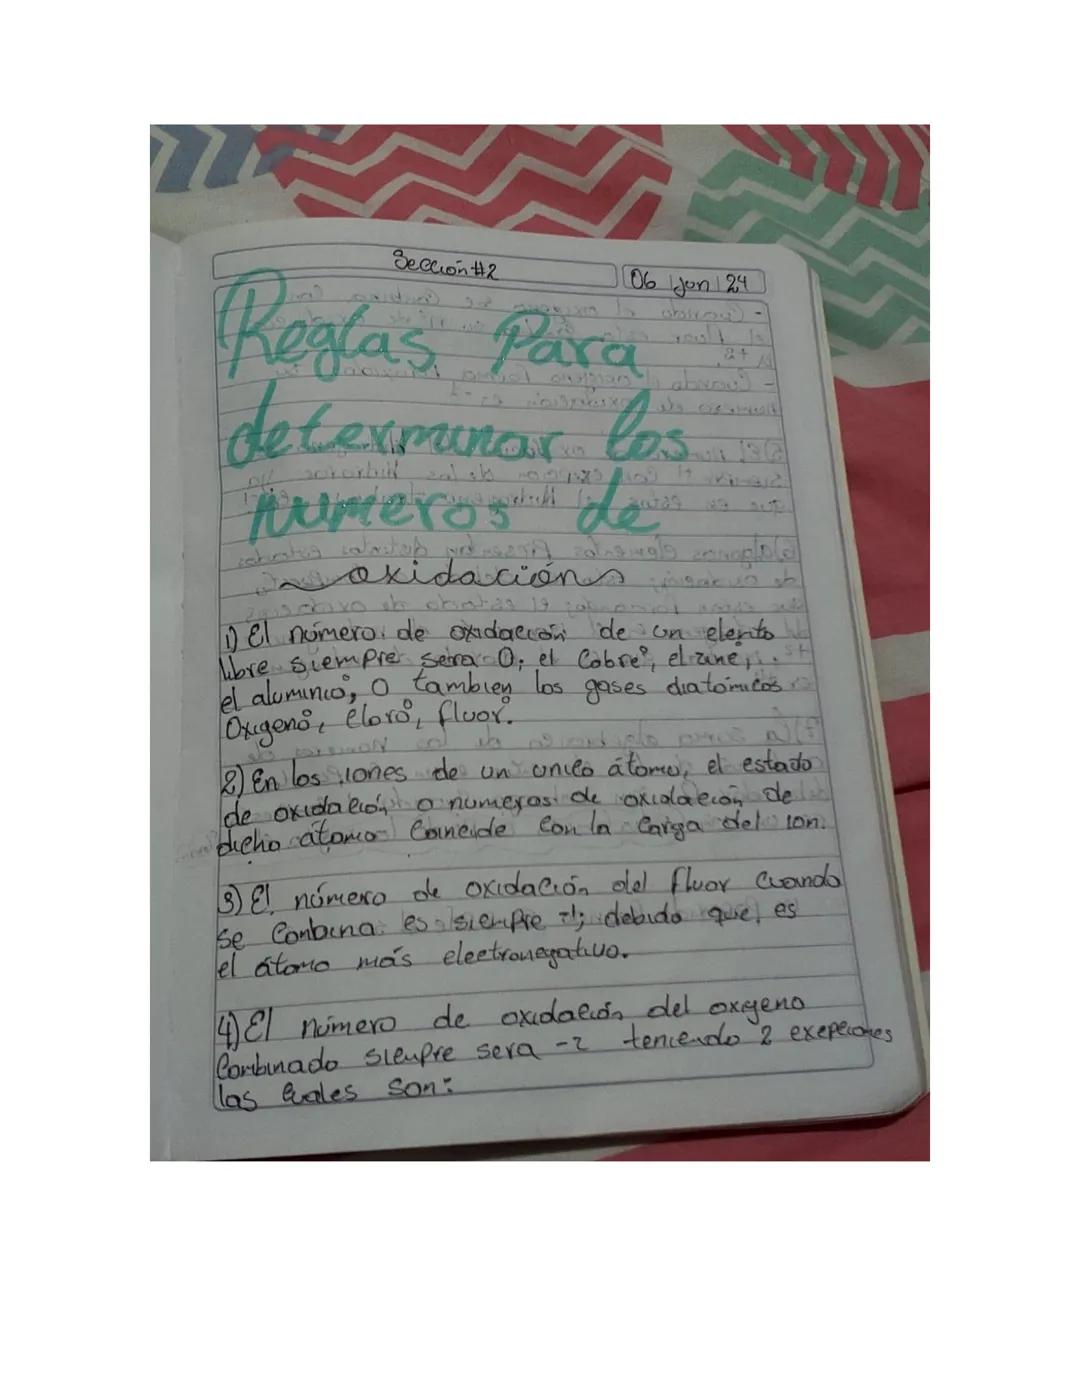 Sección #2
06 Jun 24
Reglas Para
determinar los
numeros de
oxidación
1) El número de oxidación de un elento
libre siempre sera 0; el Cobre°, el zinc°,
el aluminio°, O tambien los gases diatómicos
Oxigeno°, Cloro°, fluor°.
2) En los iones de un unico átomo, el estado
de oxidación o numeros de oxidación de
dicho átomo Coincide Con la Carga del ion.
3) El número de oxidación del fluor Cuando
se Conbina es siempre -1; debido que es
el átomo más electronegativo.
4) El número de oxidación del oxigeno
Combinado siempre sera -2 teniendo 2 exepciones
las Cuales son: